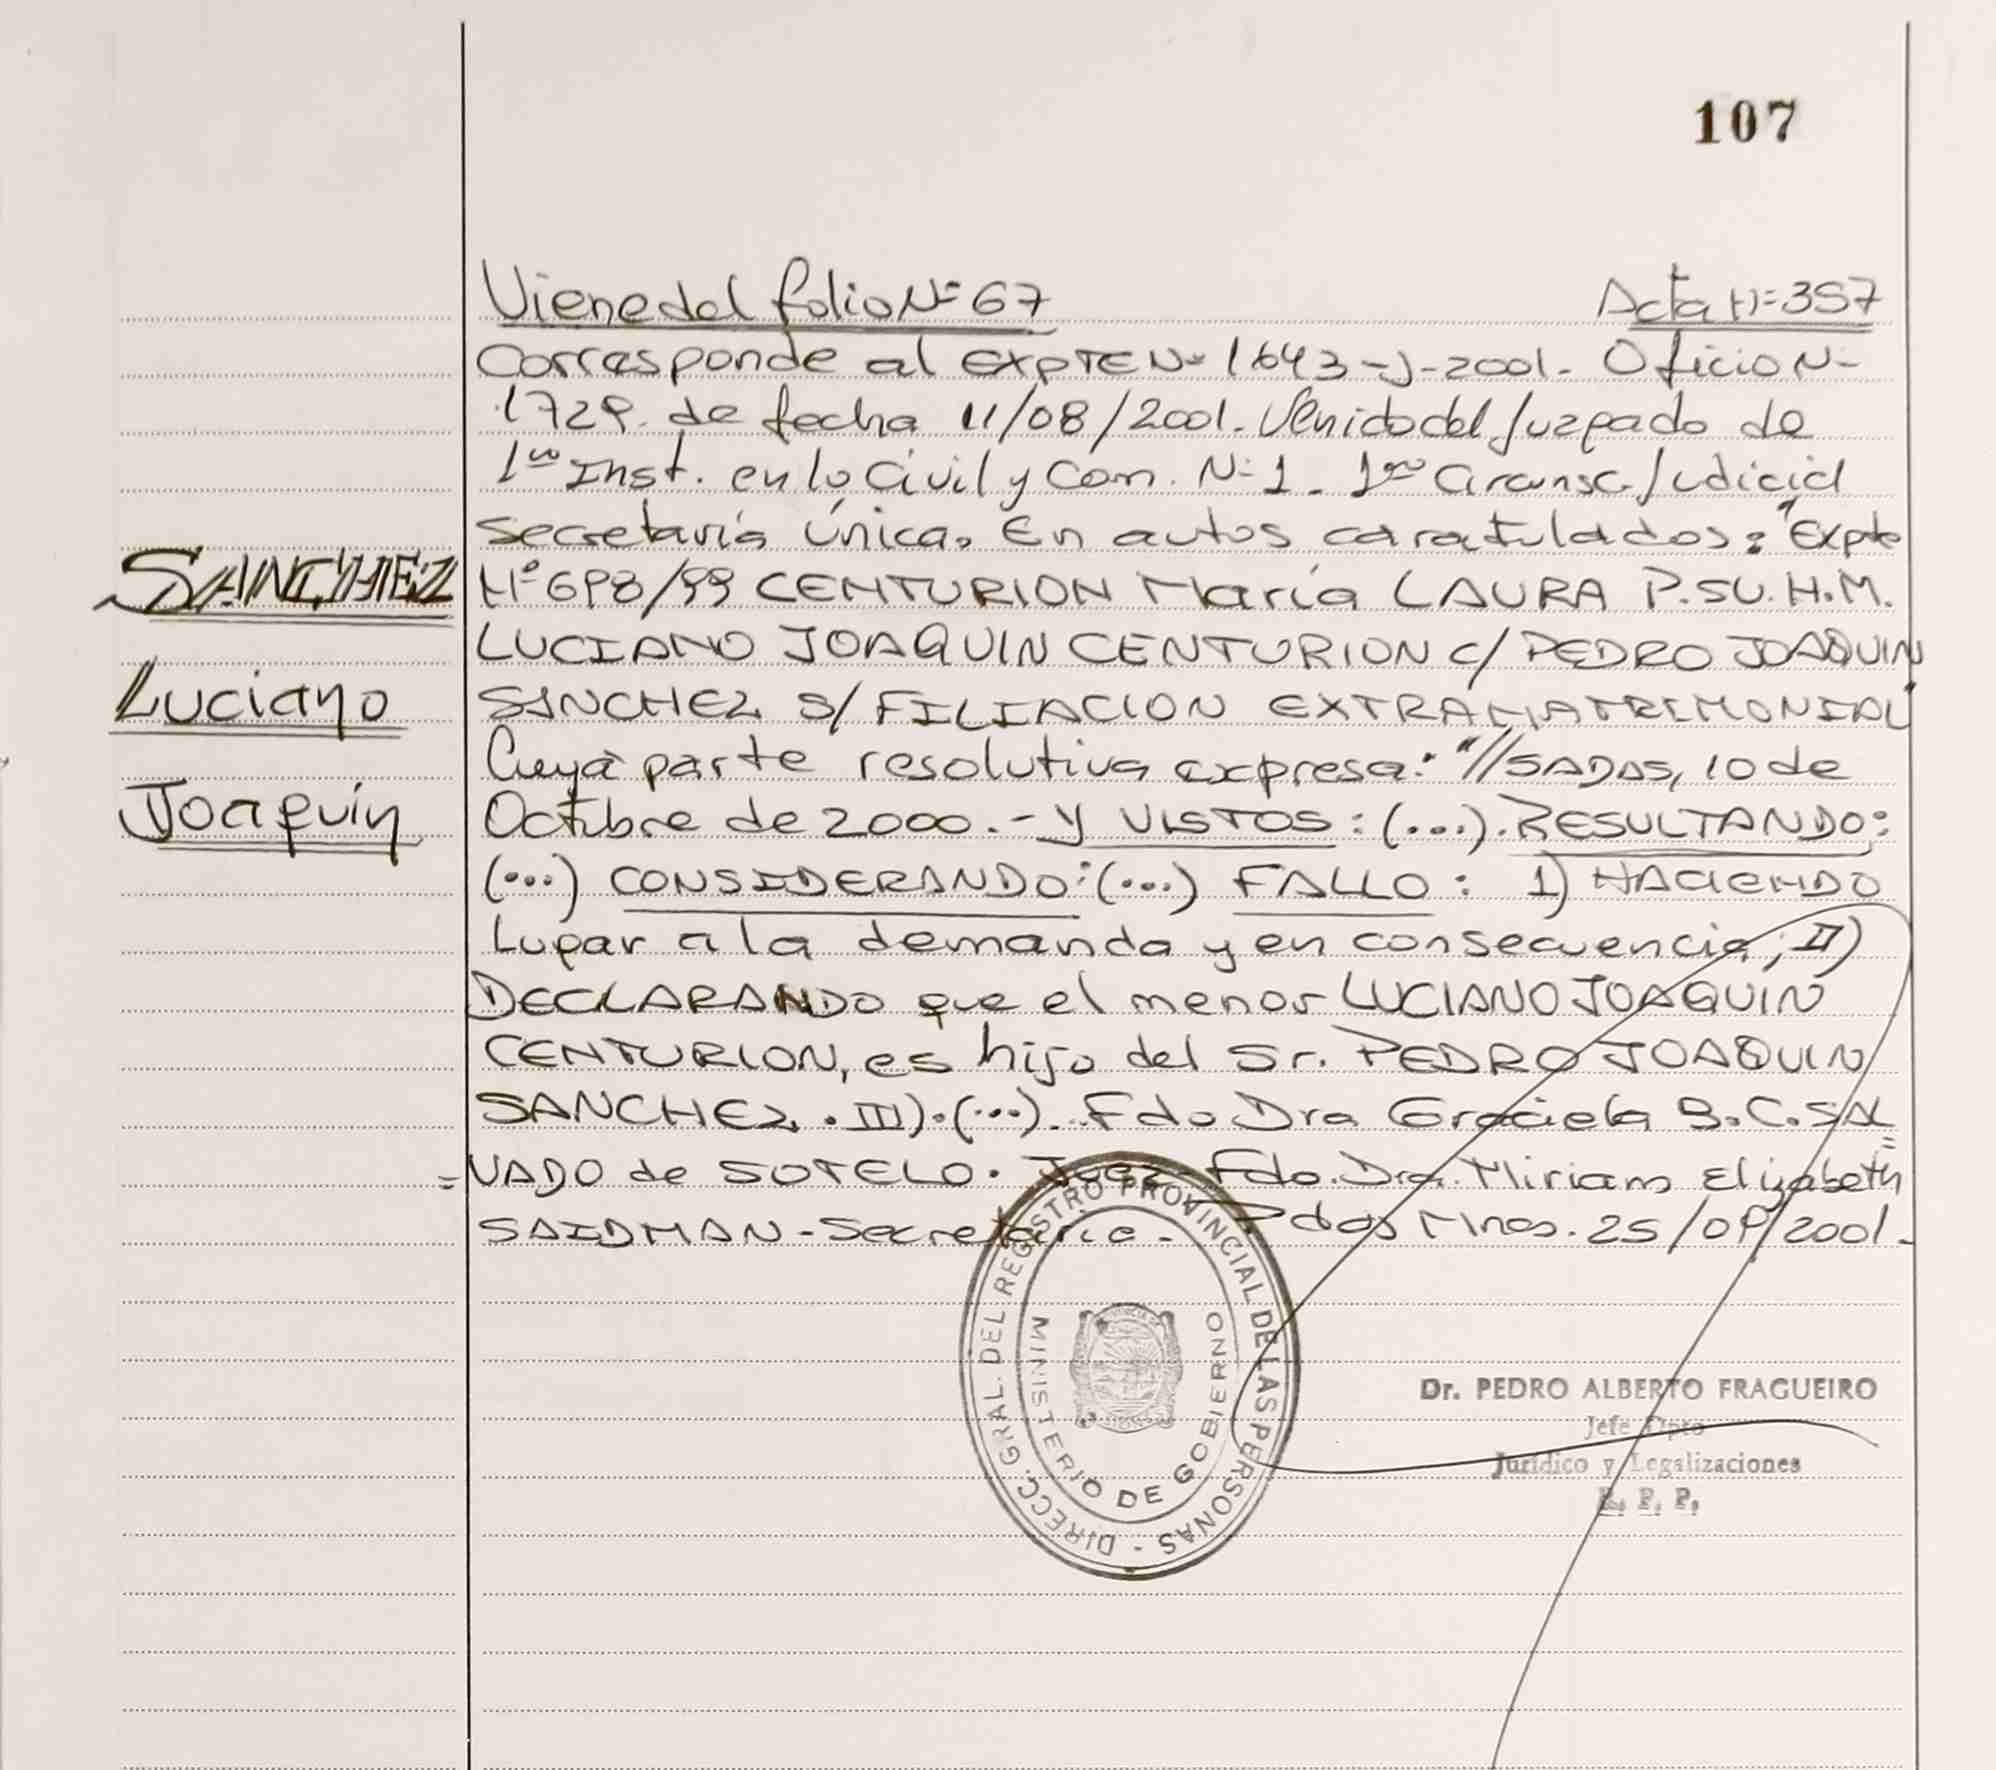 107
Viene del folio Nº 67 Acta Nº 357
Corresponde al EXPTE Nº 1643-J-2001. Oficio Nº
1729. de fecha 11/08/2001. Venido del Juzgado de
1ra Inst. en lo Civil y Com. Nº 1. 1ra Circunsc. Judicial
Secretaría Única. En autos caratulados: "Expte
Nº 698/99 CENTURION María LAURA P.SU.H.M.
LUCIANO JOAQUIN CENTURION c/ PEDRO JOAQUIN
SANCHEZ S/ FILIACION EXTRAMATRIMONIAL"
Cuya parte resolutiva expresa: "//SADAS, 10 de
Octubre de 2000.- Y VISTOS: (...). RESULTANDO:
(...) CONSIDERANDO: (...) FALLO: 1) HACIENDO
Lugar a la demanda y en consecuencia; II)
DECLARANDO que el menor LUCIANO JOAQUIN
CENTURION, es hijo del Sr. PEDRO JOAQUIN
SANCHEZ. III). (...). Fdo Dra Graciela B.C. SAL=
=VADO de SOTELO. Juez. Fdo. Dra. Miriam Elizabeth
SAIDMAN - Secretaria. - Pdas Mnes. 25/09/2001.-
SANCHEZ
Luciano
Joaquín
DIRECC. GRAL. DEL REGISTRO PROVINCIAL DE LAS PERSONAS -
MINISTERIO DE GOBIERNO
Dr. PEDRO ALBERTO FRAGUEIRO
Jefe Dpto
Jurídico y Legalizaciones
R. P. P.